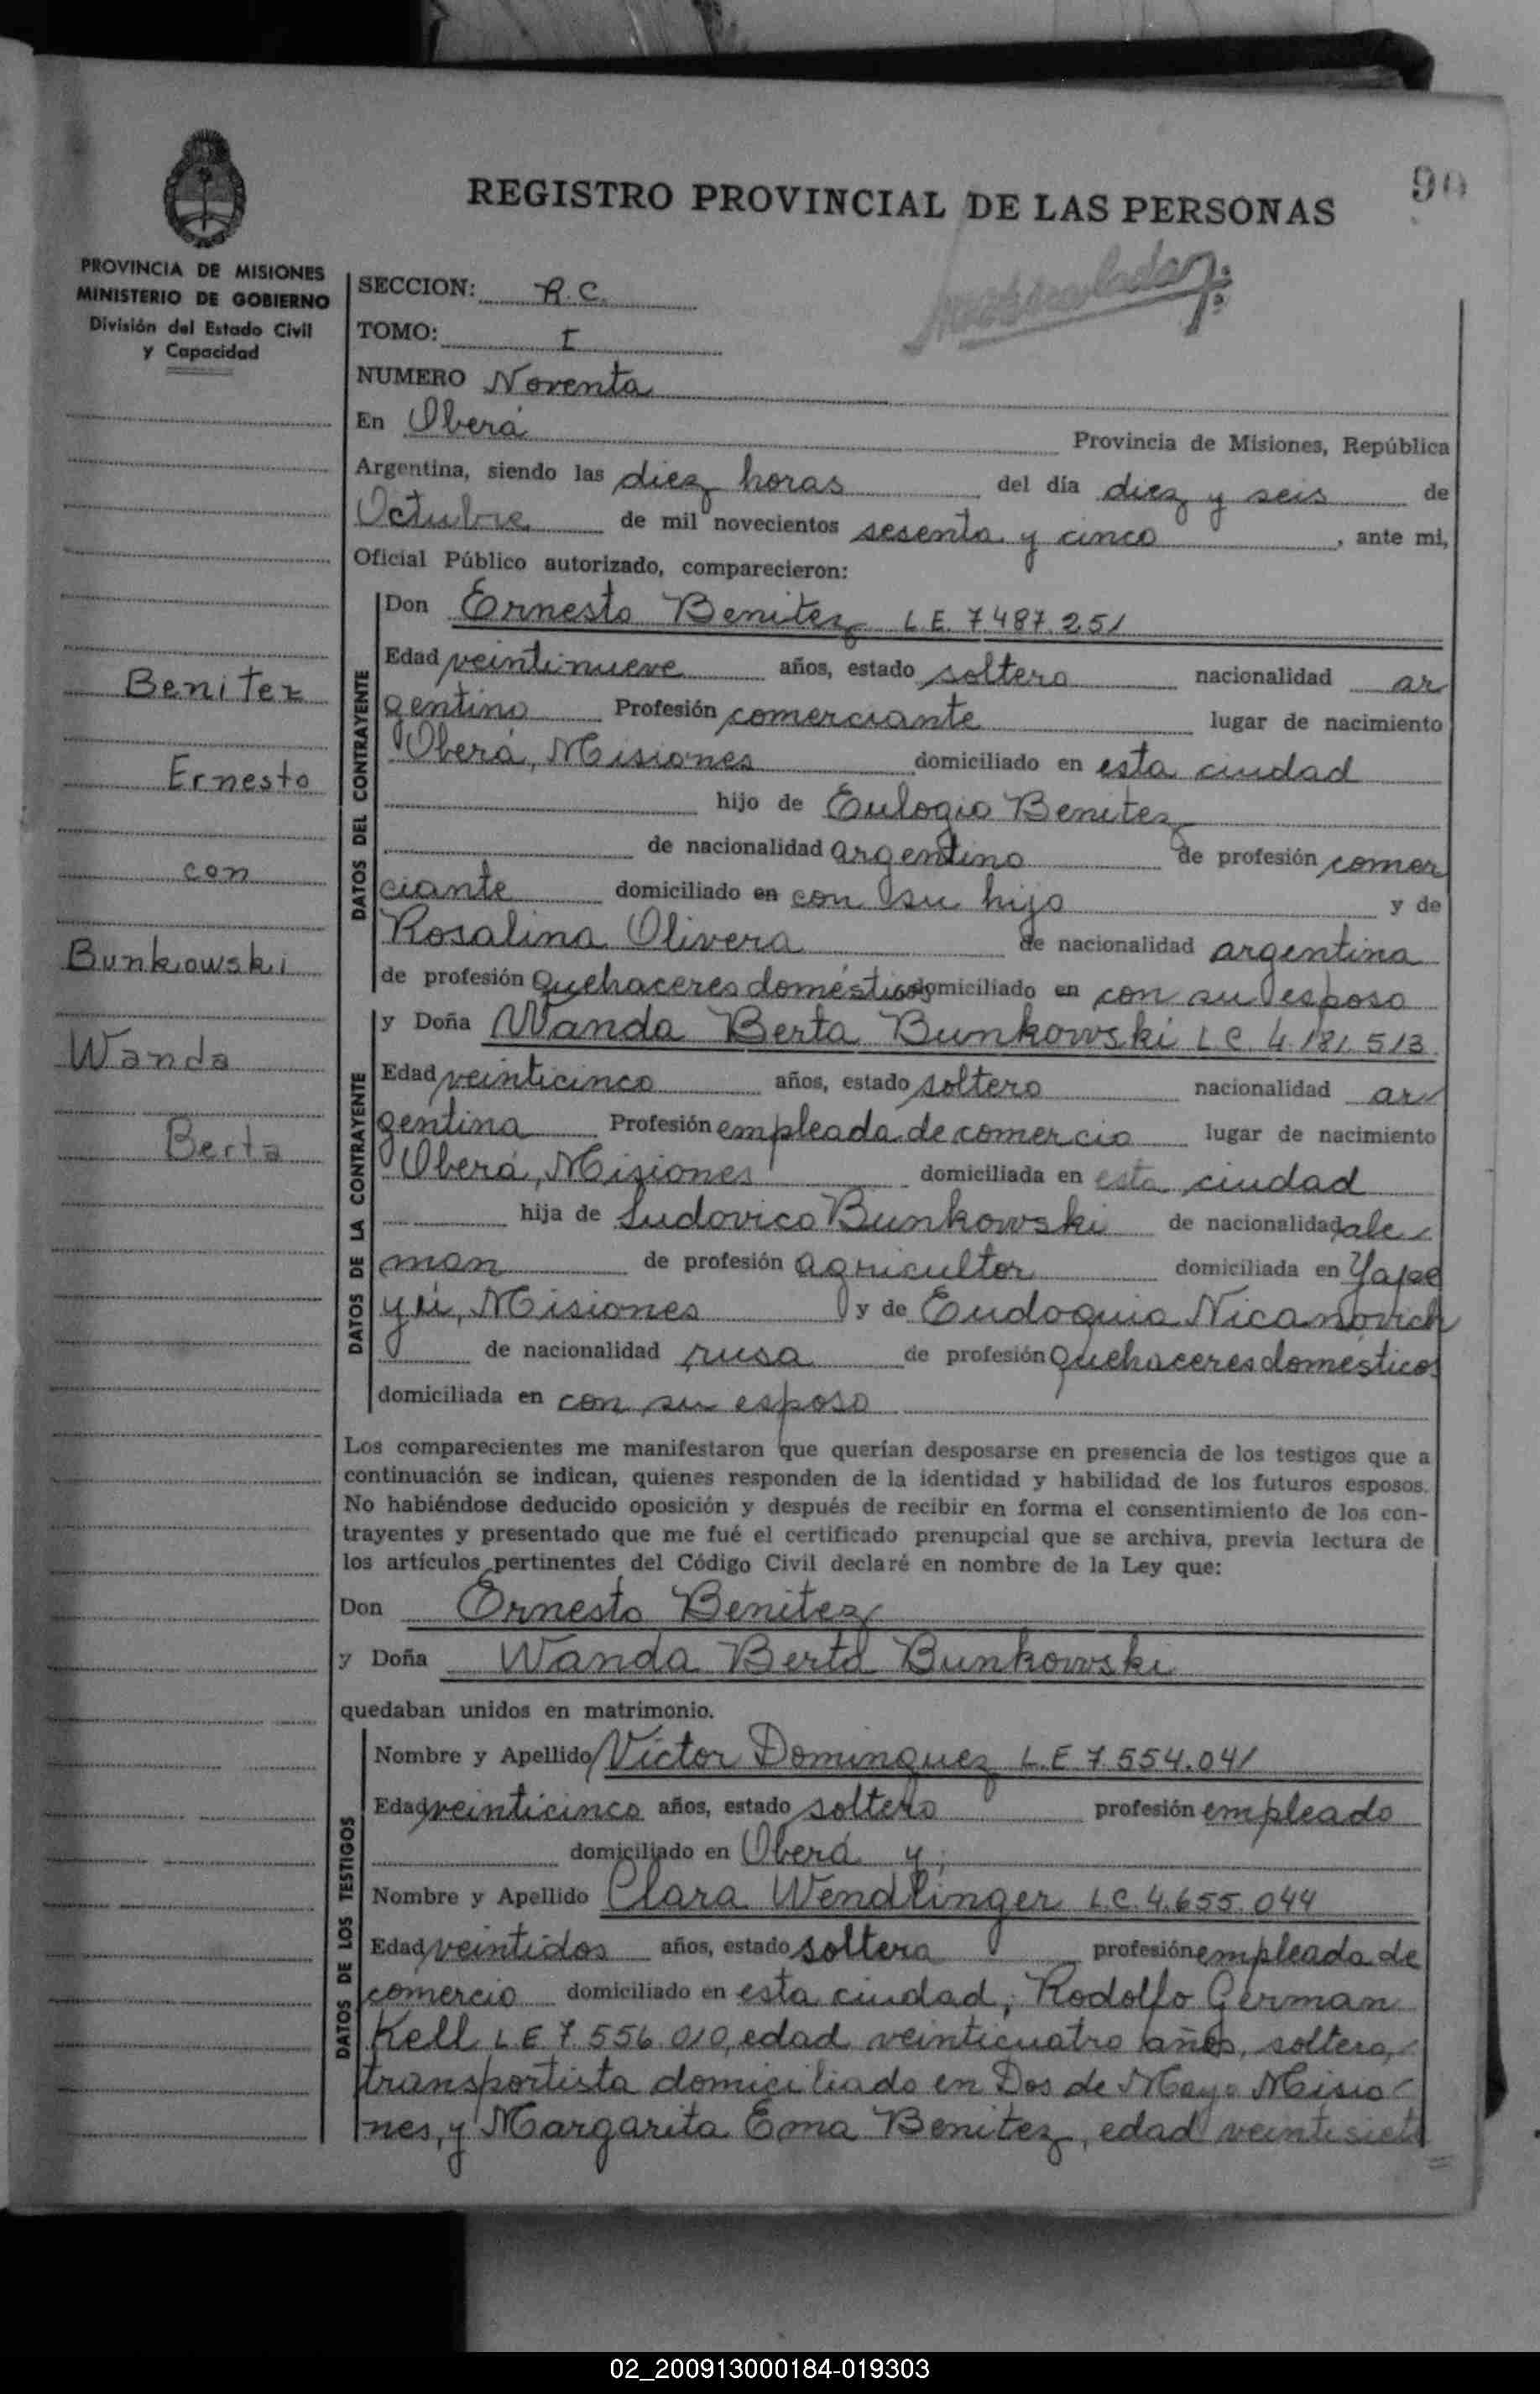 REGISTRO PROVINCIAL DE LAS PERSONAS
90
PROVINCIA DE MISIONES
MINISTERIO DE GOBIERNO
División del Estado Civil
y Capacidad
SECCION: R.C.
TOMO: I
NUMERO Noventa
En Oberá Provincia de Misiones, República
Argentina, siendo las diez horas del día diez y seis de
Octubre de mil novecientos sesenta y cinco, ante mi,
Oficial Público autorizado, comparecieron:
Benitez
Ernesto
con
Bunkowski
Wanda
Berta
DATOS DEL CONTRAYENTE
Don Ernesto Benitez L.E. 7.487.251
Edad veintinueve años, estado soltero nacionalidad ar
gentino Profesión comerciante lugar de nacimiento
Oberá, Misiones domiciliado en esta ciudad
hijo de Eulogio Benitez
de nacionalidad argentino de profesión comer
ciante domiciliado en con su hijo y de
Rosalina Olivera de nacionalidad argentina
de profesión Quehaceres domésticos domiciliado en con su esposo
DATOS DE LA CONTRAYENTE
y Doña Wanda Berta Bunkowski L.C. 4.181.513
Edad veinticinco años, estado soltero nacionalidad ar
gentina Profesión empleada de comercio lugar de nacimiento
Oberá, Misiones domiciliada en esta ciudad
hija de Ludovico Bunkowski de nacionalidad ale
man de profesión agricultor domiciliada en Yape
yú, Misiones y de Eudoquia Nicanovich
de nacionalidad rusa de profesión Quehaceres domésticos
domiciliada en con su esposo
Los comparecientes me manifestaron que querían desposarse en presencia de los testigos que a
continuación se indican, quienes responden de la identidad y habilidad de los futuros esposos.
No habiéndose deducido oposición y después de recibir en forma el consentimiento de los con-
trayentes y presentado que me fué el certificado prenupcial que se archiva, previa lectura de
los artículos pertinentes del Código Civil declaré en nombre de la Ley que:
Don Ernesto Benitez
y Doña Wanda Berta Bunkowski
quedaban unidos en matrimonio.
DATOS DE LOS TESTIGOS
Nombre y Apellido Víctor Dominguez L.E 7.554.041
Edad veinticinco años, estado soltero profesión empleado
domiciliado en Oberá y;
Nombre y Apellido Clara Wendlinger L.C. 4.655.044
Edad veintidos años, estado soltera profesión empleada de
comercio domiciliado en esta ciudad; Rodolfo German
Kell L.E 7.556.010, edad veinticuatro años, soltero,
transportista domiciliado en Dos de Mayo Misio
nes, y Margarita Ema Benitez, edad veintisiete
02_200913000184-019303